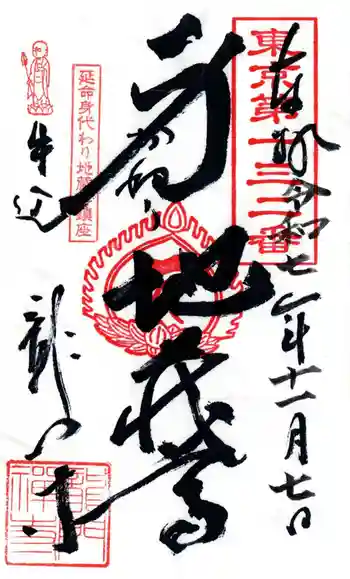 奉拝 令和七年十一月七日
東京第二三番
身代わり
地蔵尊
延命身代わり地蔵尊鎮座
牛込
龍門寺
龍門禅寺